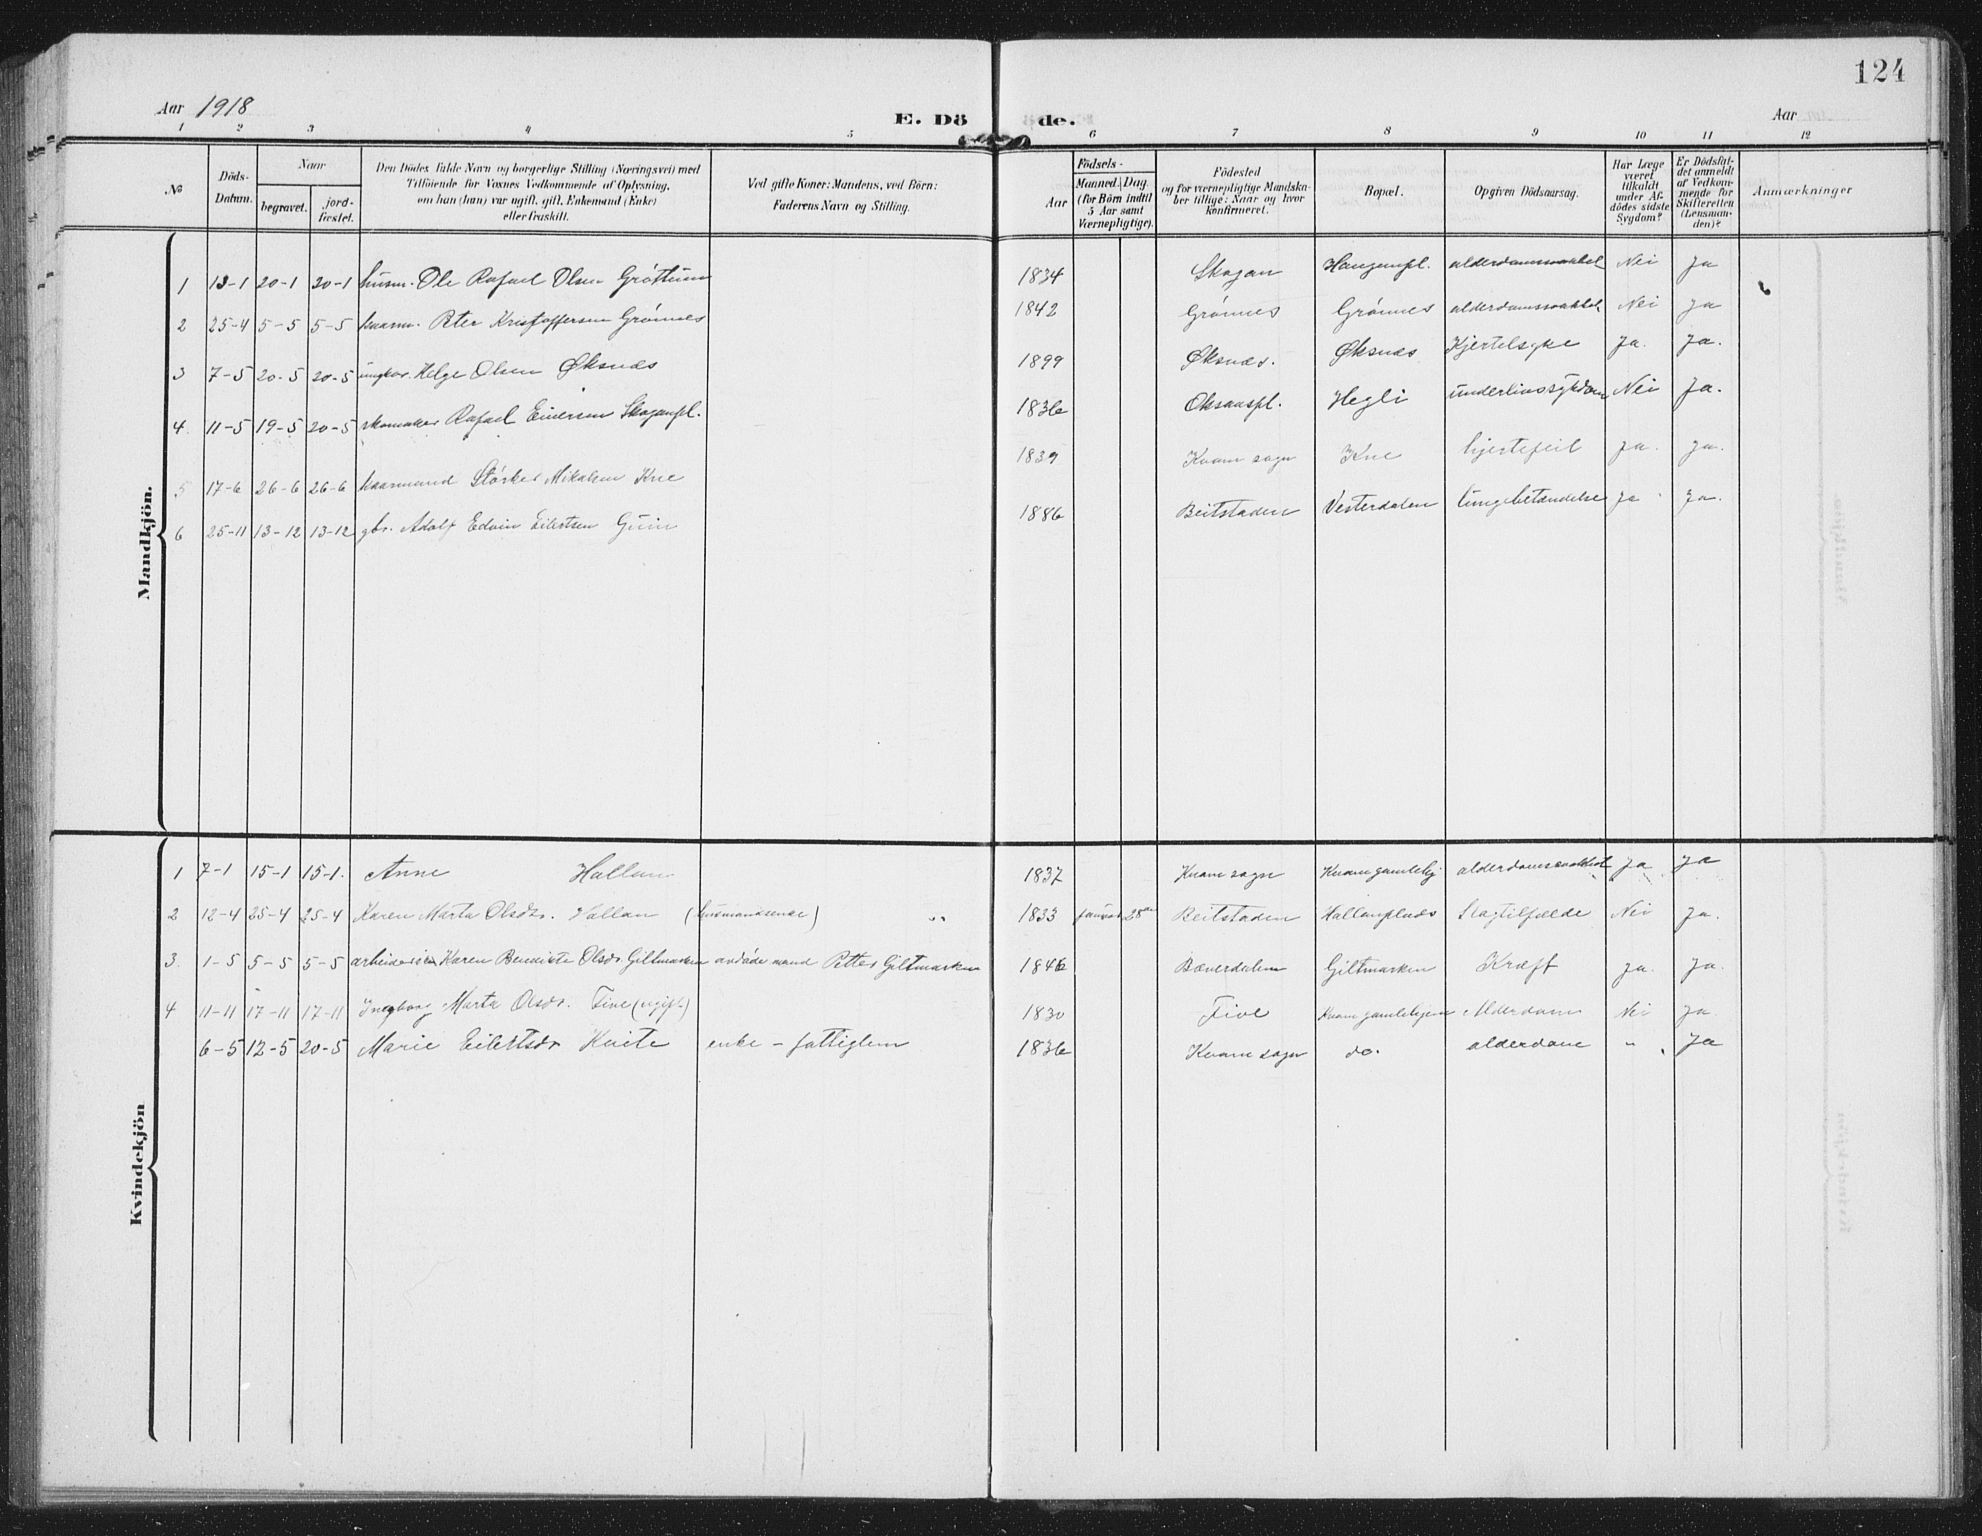 124
Aar 1918
E. Dö
de.
Aar
1 2 3 4 5 6 7 8 9 10 11 12
No
Döds-Datum.
Naar
begravet.
jord-fæstet.
Den Dödes fulde Navn og borgerlige Stilling (Næringsvei) med
Tilföiende for Voxnes Vedkommende af Oplysning,
om han (hun) var ugift, gift, Enkemand (Enke)
eller fraskilt.
Ved gifte Koner: Mandens, ved Börn:
Faderens Navn og Stilling.
Födsels-
Aar
Maaned. Dag
(for Börn indtil
5 Aar samt
Værnepligtige).
Födested
og for værnepligtige Mandska-
ber tillige: Naar og hvor
konfirmeret.
Bopæl.
Opgiven Dödsaarsag.
Har Læge
været
tilkaldt
under Af-
dödes sidste
Sygdom?
Er Dödsfal-
det anmeldt
af Vedkom-
mende for
Skifteretten
(Lensman-
den)?
Anmærkninger
Mandkjön.
1 13-1 20-1 20-1 husm. Ole Rafael Olsen Grøttum 1834 Skogan Hauganpl. alderdomssvakhet Nei Ja
2 25-4 5-5 5-5 kaarm. Peter Kristoffersen Grønnes 1842 Grønnes Grønnes alderdomssvakhet Nei Ja
3 7-5 20-5 20-5 ungkar Helge Olsen Øksnæs 1899 Øksnæs. Øksnæs Kjertelsyke Ja. Ja.
4. 11-5 19-5 20-5 skomaker Rafael Einersen Skoganpl. 1836 Hegli underlivssykdom Nei Ja.
5 17-6 26-6 26-6 kaarmand Størker Mikalsen Kne 1839 Kvam sogn Kne hjertefeil Ja. Ja.
6 25-11 13-12 13-12 gbr. Adolf Edvin Eilertsen Guin 1886 Beitstaden Vesterdalen lungebetændelse Ja Ja.
Kvindekjön
1 7-1 15-1 15-1. Anne Hallan 1837 Kvam sogn Kvam gamlehj alderdomssvakhet Ja Ja
2 12-4 25-4 25-4 Karen Marta Olsdr. Hallan (husmandsenke) " 1833 januar 28de Beitstaden Hallanplads Slagtilfælde Nei Ja.
3. 1-5 5-5 5-5 Karen Benedikte Olsdr Giltmarken avdøde mand Petter Giltmarken 1846 Bæverdalen Giltmarken Kræft Ja. Ja.
4 11-11 17-11 17-11 Ingeborg Marta Olsdr. Five (ugift) 1830 Five Kvam gamlehjem Alderdom Nei Ja.
6-5 12-5 20-5 Marie Eilertsdr Kvite enke - fattiglem 1836 Kvam sogn do. alderdom " Ja